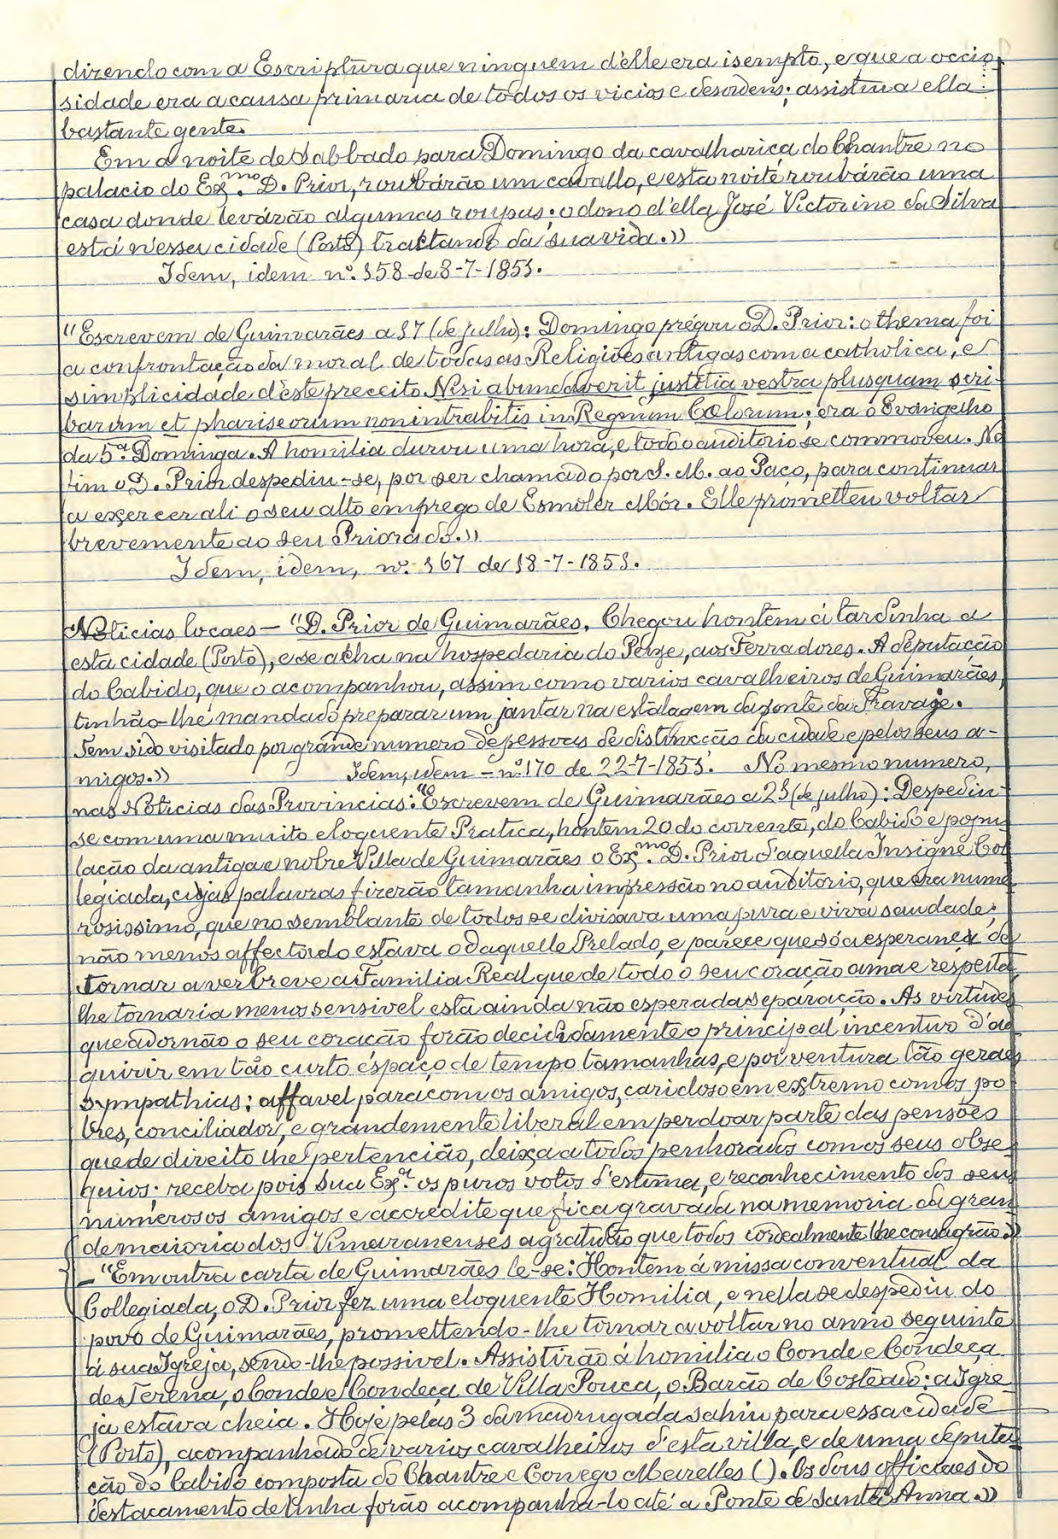 dizendo com a Escriptura que ninguem d'elle era isempto, e que a occio-
sidade era a causa primaria de todos os vicios e desordens; assistiu a ella
bastante gente.
Em a noite de Sabbado para Domingo da cavalhariça do Chantre no
palacio do Exmo. D. Prior, roubárão um cavallo, e esta noite roubárão uma
casa donde levárão algumas roupas: o dono d'ella José Victorino da Silva
está n'essa cidade (Porto) tractando da sua vida.»
Idem, idem nº. 158 de 8-7-1851.
"Escrevem de Guimarães a 17 (de julho): Domingo prégou o D. Prior: o thema foi
a confrontação da moral de todas as Religiões antigas com a catholica, e
simplicidade d'este preceito. Nisi abundaverit justitia vestra plusquam scri-
barum et phariseorum non intrabitis in Regnum Cœlorum; era o Evangelho
da 5ª. Dominga. A homilia durou uma hora, e todo o auditorio se commoveu. No
fim o D. Prior despediu-se, por ser chamado por S. M. ao Paço, para continuar
a exercer ali o seu alto emprego de Esmoler Mór. Elle prometteu voltar
brevemente ao seu Priorado.»
Idem, idem, nº. 167 de 18-7-1851.
Noticias locaes — "D. Prior de Guimarães. Chegou hontem á tardinha a
esta cidade (Porto), e se acha na hospedaria do Peixe, aos Ferradores. A deputação
do Cabido, que o acompanhou, assim como varios cavalheiros de Guimarães,
tinhão-lhe mandado preparar um jantar na estalagem da ponte da Travage.
Tem sido visitado por grande numero de pessoas de distincção da cidade e pelos seus a-
migos.» Idem, idem - nº. 170 de 22-7-1851. No mesmo numero,
nas Noticias das Provincias: "Escrevem de Guimarães a 21 (de julho): Despediu-
se com uma muito eloquente Pratica, hontem 20 do corrente, do Cabido e popu-
lação da antiga e nobre Villa de Guimarães o Exmo. D. Prior d'aquella Insigne Col
legiada, cujas palavras fizerão tamanha impressão no auditorio, que era nume
rosissimo, que no semblante de todos se divisava uma pura e viva saudade;
não menos affectado estava o daquelle Prelado, e parece que só a esperança de
tornar a ver breve a Familia Real que de todo o seu coração ama e respeita
lhe tornaria menos sensivel esta ainda não esperada separação. As virtudes
que adornão o seu coração forão decididamente o principal incentivo d'ad
quirir em tão curto espaço de tempo tamanhas, e por ventura tão geraes
sympathias; affavel para com os amigos, caridoso em extremo com os po
bres, conciliador, e grandemente liberal em perdoar parte das pensões
que de direito lhe pertencião, deixa a todos penhorados com os seus obse-
quios: receba pois Sua Exª. os puros votos d'estima, e reconhecimento dos seus
numerosos amigos e accredite que fica gravada na memoria da gran
de maioria dos Vimaranenses a gratidão que todos cordealmente lhe consagrão.»
— "Em outra carta de Guimarães le-se: Hontem á missa conventual da
Collegiada, o D. Prior fez uma eloquente Homilia, e nella se despediu do
povo de Guimarães, promettendo-lhe tornar a voltar no anno seguinte
á sua Igreja, sendo-lhe possivel. Assistirão á homilia o Conde e Condeça
de Terena, o Conde e Condeça de Villa Pouca, o Barão de Costeado: a Igre-
ja estava cheia. Hoje pelas 3 da madrugada sahiu para essa cidade
(Porto), acompanhado de varios cavalheiros d'esta villa, e de uma deputa-
ção do Cabido composta do Chantre e Conego Meirelles (). Os dous officiaes do
destacamento de linha forão acompanha-lo até a Ponte de Santa Anna.»